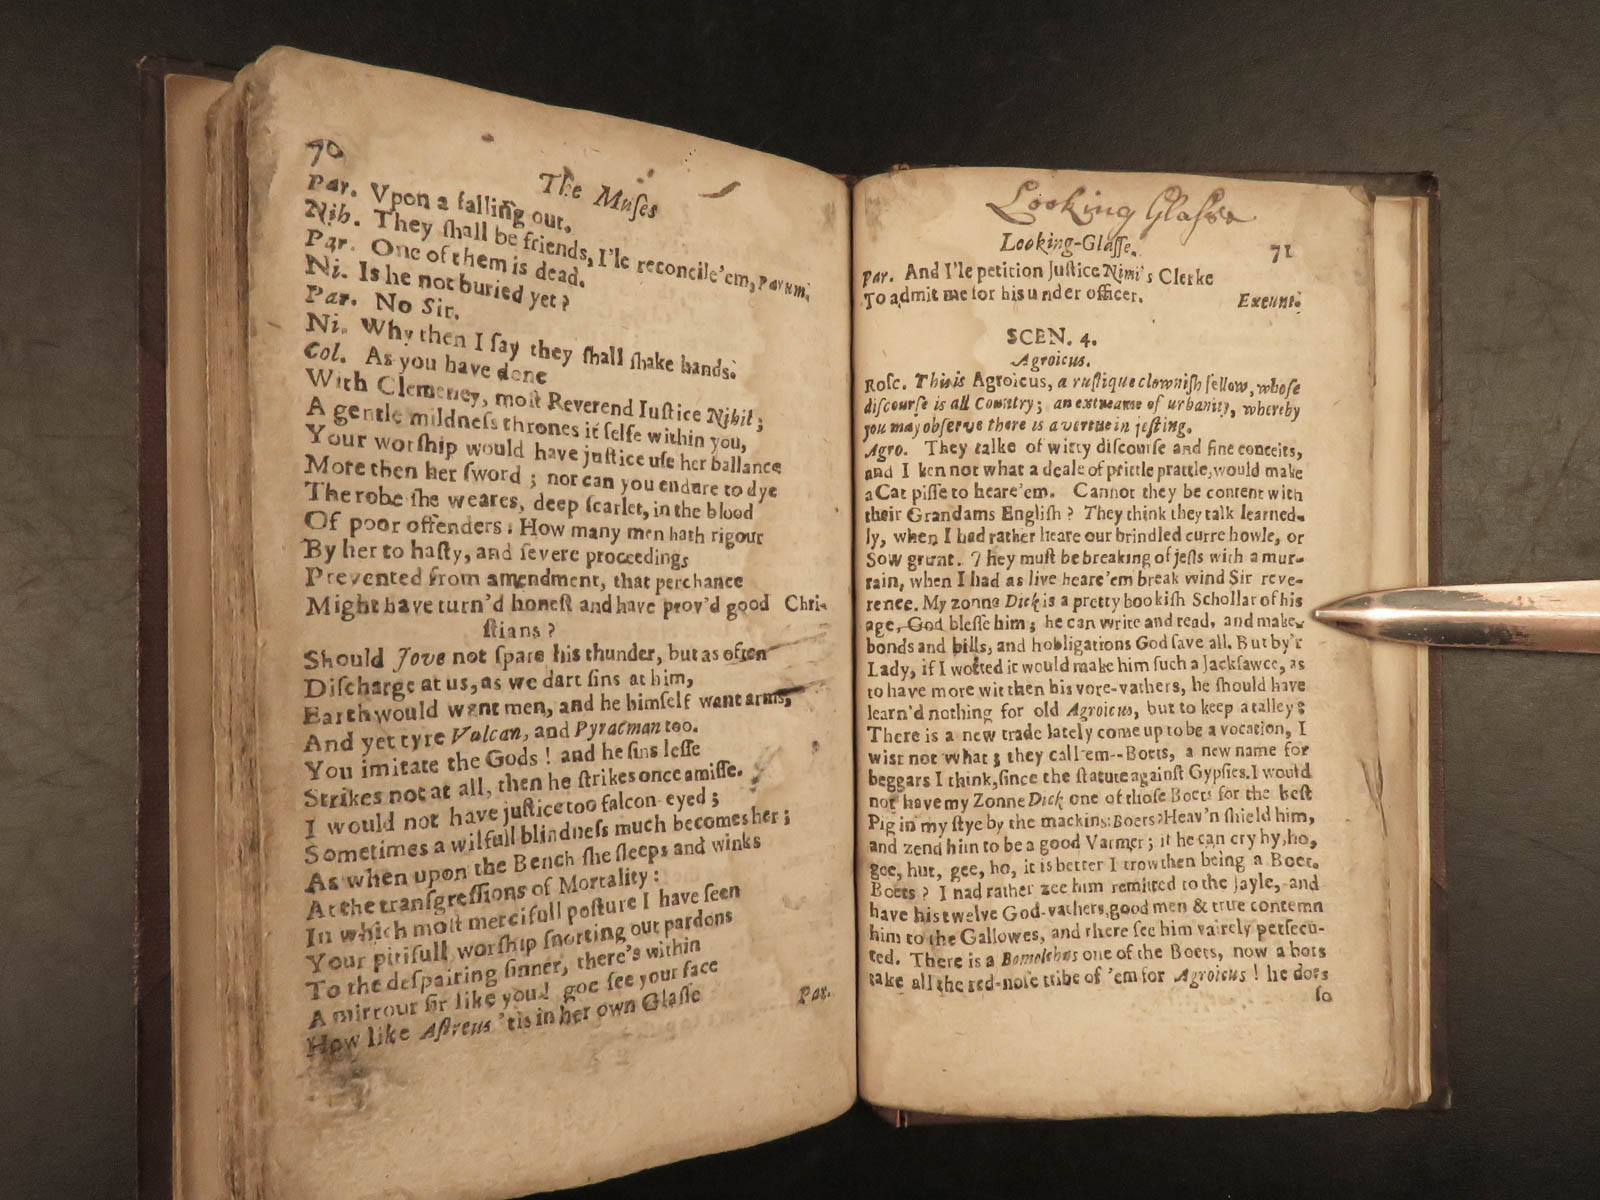 70
The Muſes
Par. Vpon a falling out.
Nih. They ſhall be friends, I'le reconcile'em, Parum.
Par. One of them is dead.
Ni. Is he not buried yet?
Par. No Sir.
Ni. Why then I ſay they ſhall ſhake hands.
Col. As you have done
With Clemency, moſt Reverend Iuſtice Nihil;
A gentle mildneſs thrones it ſelfe within you,
Your worſhip would have juſtice uſe her ballance
More then her ſword; nor can you endure to dye
The robe ſhe weares, deep ſcarlet, in the blood
Of poor offenders. How many men hath rigour
By her to haſty, and ſevere proceedings
Prevented from amendment, that perchance
Might have turn'd honeſt and have prov'd good Chri-
ſtians?
Should Jove not ſpare his thunder, but as often
Diſcharge at us, as we dart ſins at him,
Earth would want men, and he himſelf want arms,
And yet tyre Vulcan, and Pyracman too.
You imitate the Gods! and he ſins leſſe
Strikes not at all, then he ſtrikes once amiſſe.
I would not have juſtice too falcon-eyed;
Sometimes a wilfull blindneſs much becomes her;
As when upon the Bench ſhe ſleeps and winks
At the tranſgreſſions of Mortality:
In which moſt mercifull poſture I have ſeen
Your pitifull worſhip ſnorting out pardons
To the deſpairing ſinner, there's within
A mirrour ſir like you! goe ſee your face
How like Aſtreus 'tis in her own Glaſſe
Par.
Looking Glaſse
Looking-Glaſſe.
71
Par. And I'le petition Juſtice Nimi's Clerke
To admit me for his under officer.
Exeunt.
SCEN. 4.
Agroicus.
Roſc. This is Agroicus, a ruſtique clowniſh fellow, whoſe
diſcourſe is all Country; an extreame of urbanity, whereby
you may obſerve there is a vertue in jeſting.
Agro. They talke of witty diſcourſe and fine conceits,
and I ken not what a deale of prittle prattle, would make
a Cat piſſe to heare'em. Cannot they be content with
their Grandams Engliſh? They think they talk learned-
ly, when I had rather heare our brindled curre howle, or
Sow grunt. They muſt be breaking of jeſts with a mur-
rain, when I had as live heare'em break wind Sir reve-
rence. My zonne Dick is a pretty bookiſh Schollar of his
age, God bleſſe him; he can write and read, and make
bonds and bills, and hobligations God ſave all. But by'r
Lady, if I wotted it would make him ſuch a Jackſawce, as
to have more wit then his vore-vathers, he ſhould have
learn'd nothing for old Agroicus, but to keep a talley:
There is a new trade lately come up to be a vocation, I
wist not what; they call em--Boets, a new name for
beggars I think, ſince the ſtatute againſt Gypſies. I would
not have my Zonne Dick one of thoſe Boets for the beſt
Pig in my ſtye by the mackins: Boets? Heav'n ſhield him,
and zend him to be a good Varmer; if he can cry hy, ho,
gee, hut, gee, ho, it is better I trow then being a Boet.
Boets? I had rather zee him remitted to the Jayle, and
have his twelve God-vathers, good men & true contemn
him to the Gallowes, and there ſee him vairely perſecu-
ted. There is a Bomolchus one of the Boets, now a bots
take all the red-noſe tribe of 'em for Agroicus! he does
ſo